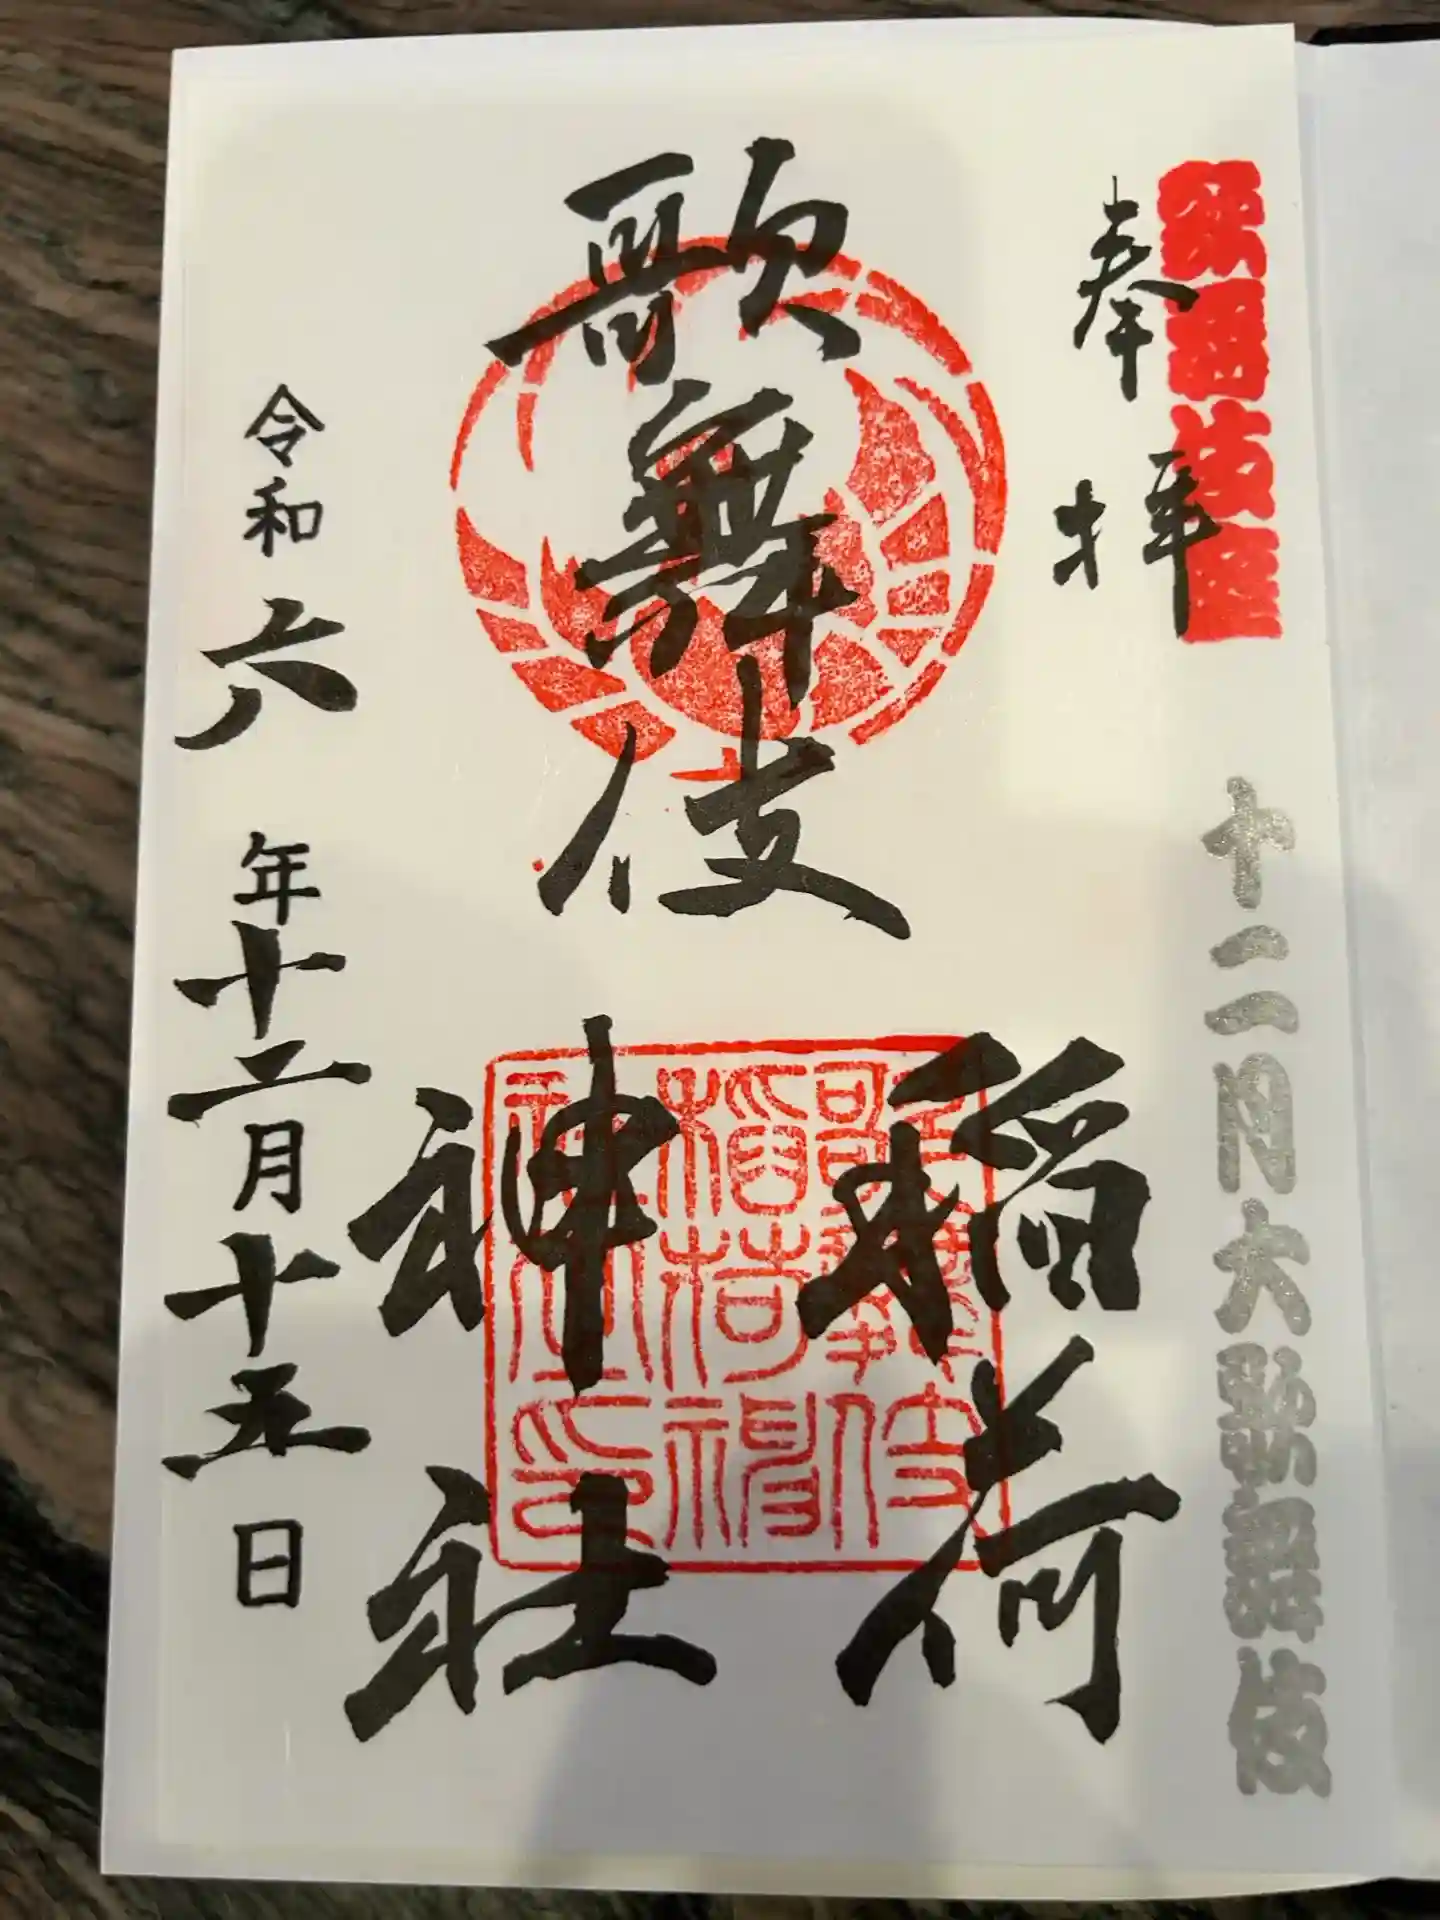 歌舞伎座
奉拝
十二月大歌舞伎
歌舞伎
稲荷
神社
歌舞伎
稲荷神
社之印
令和六年十二月十五日